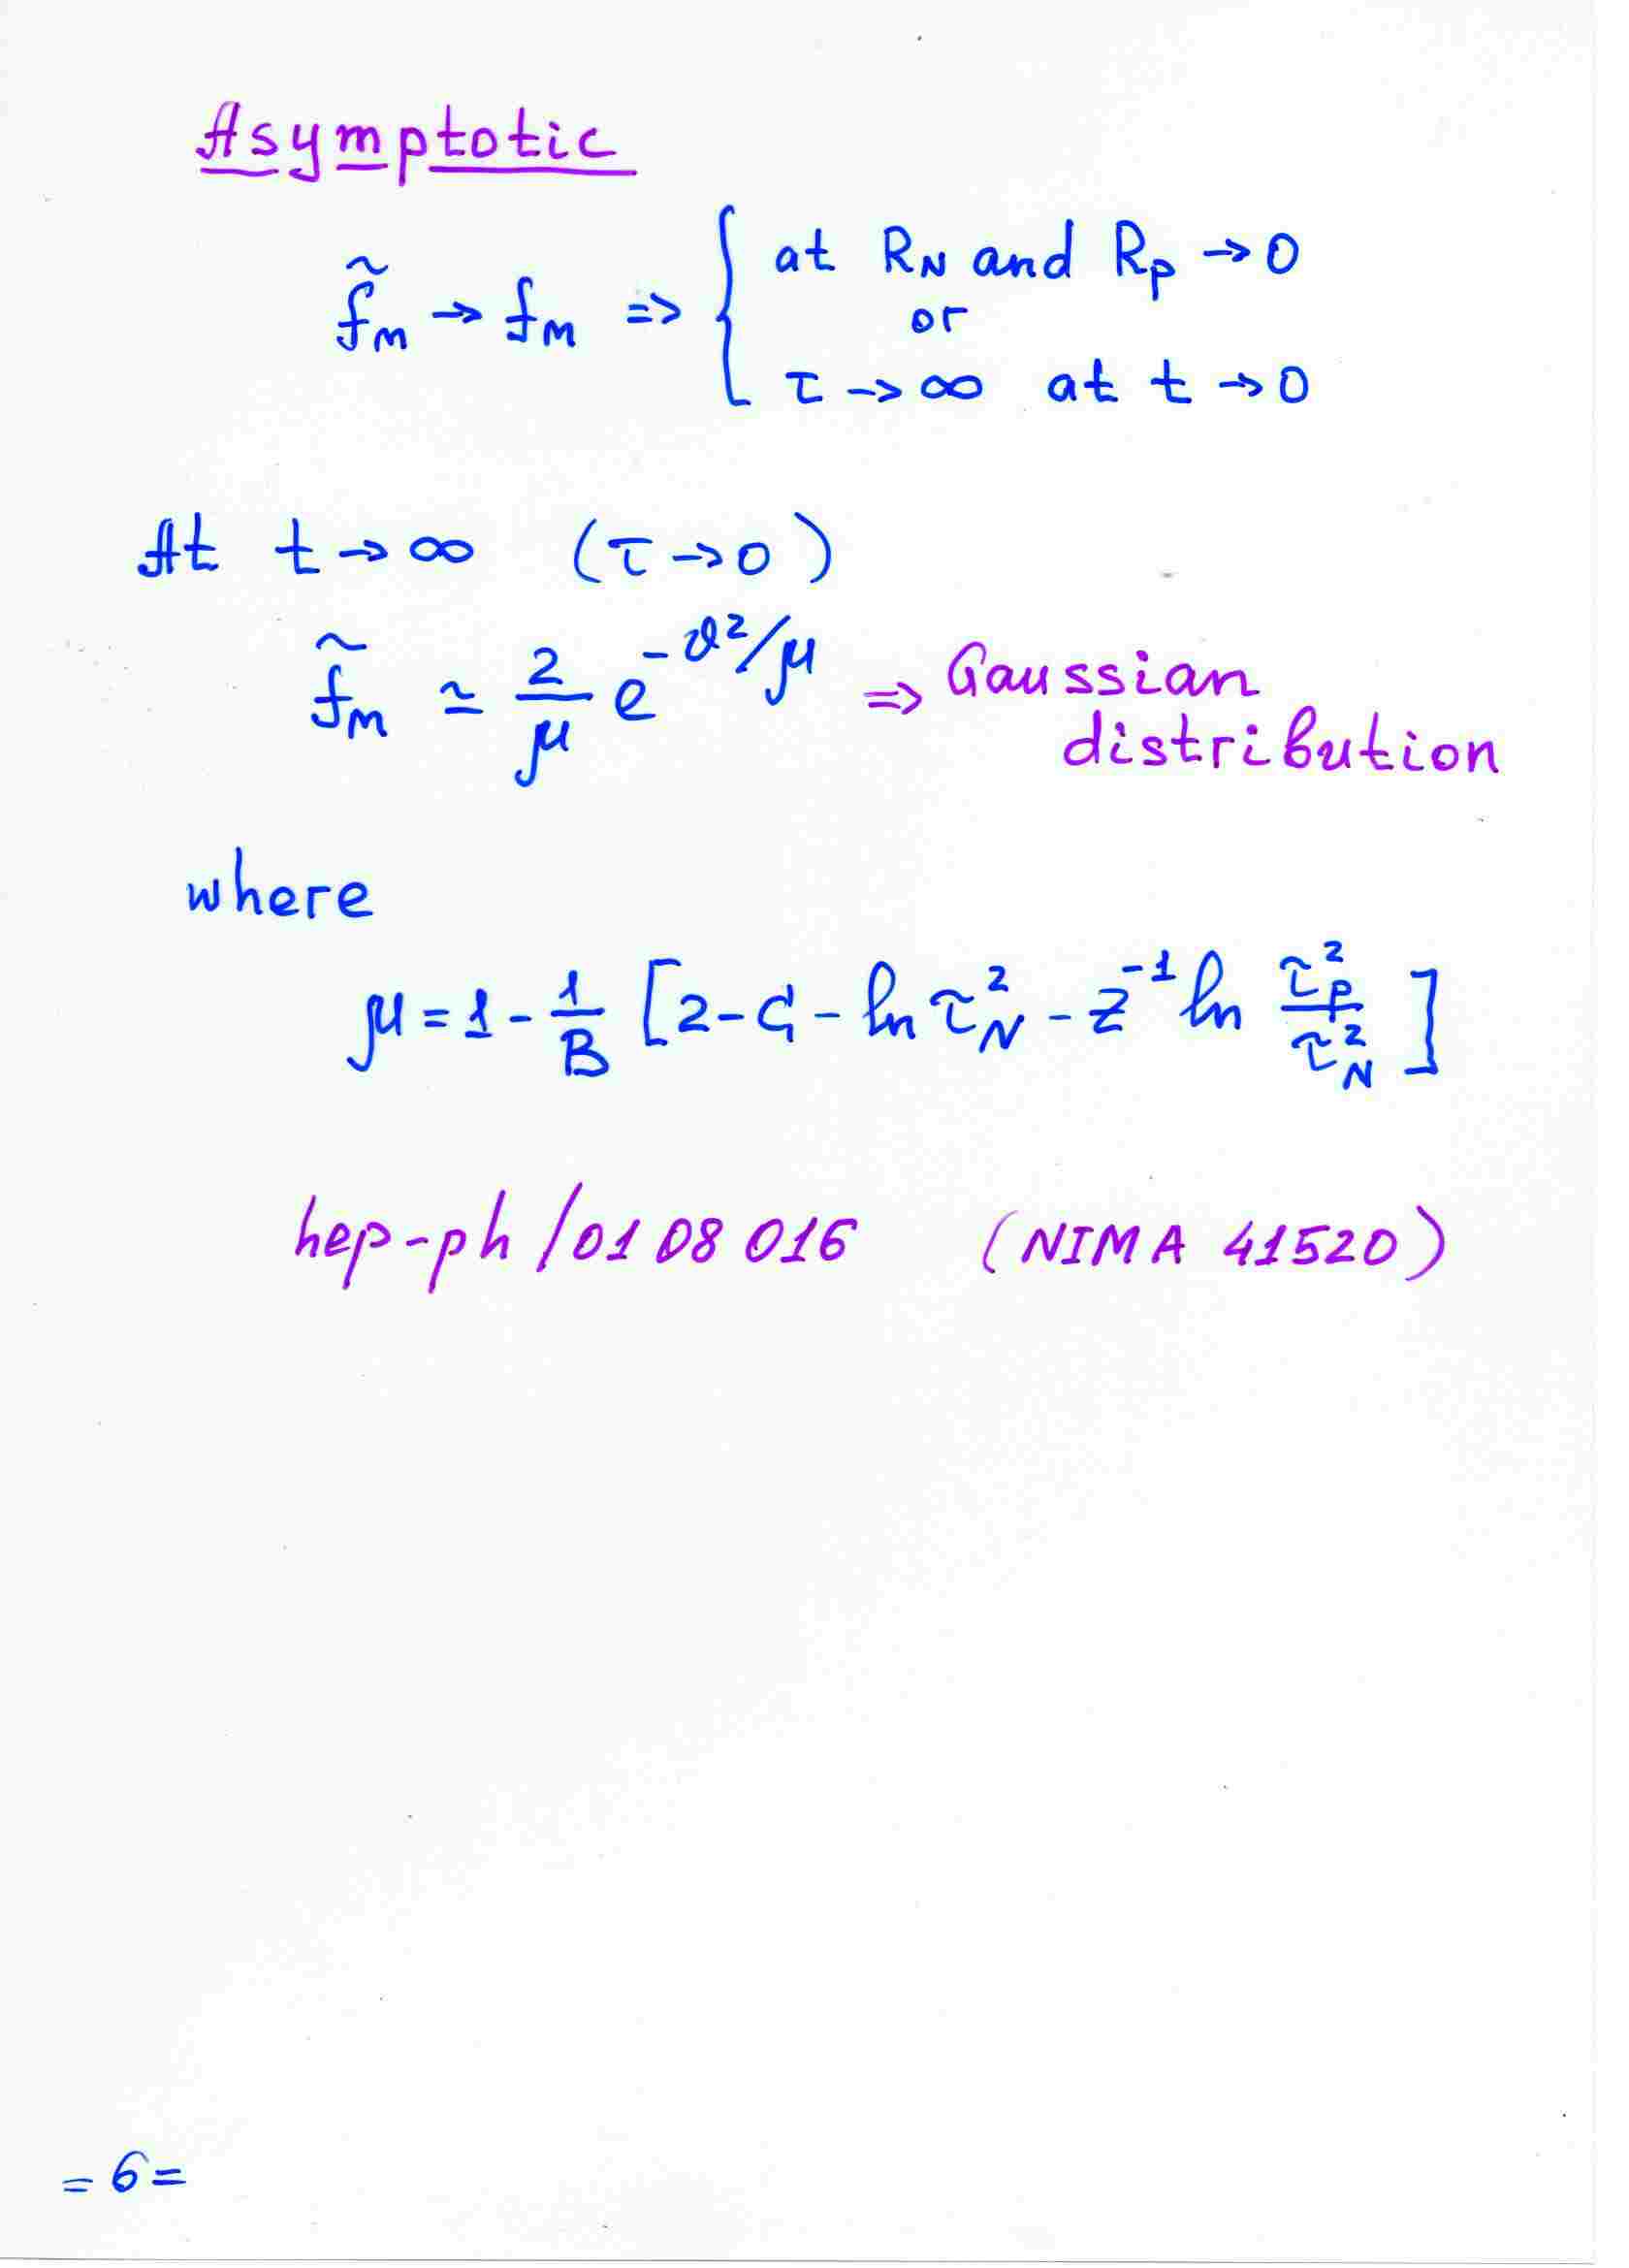 Asymptotic
f̃_M → f_M ⇒ { at R_N and R_p → 0
or
τ → ∞ at t → 0
At t → ∞ (τ → 0)
f̃_M ≃ 2/μ e^{-ϑ²/μ} ⇒ Gaussian
distribution
where
μ = 1 - 1/B [2 - C - ln τ_N² - Z⁻¹ ln τ_p²/τ_N²]
hep-ph/0108016 (NIMA 41520)
= 6 =